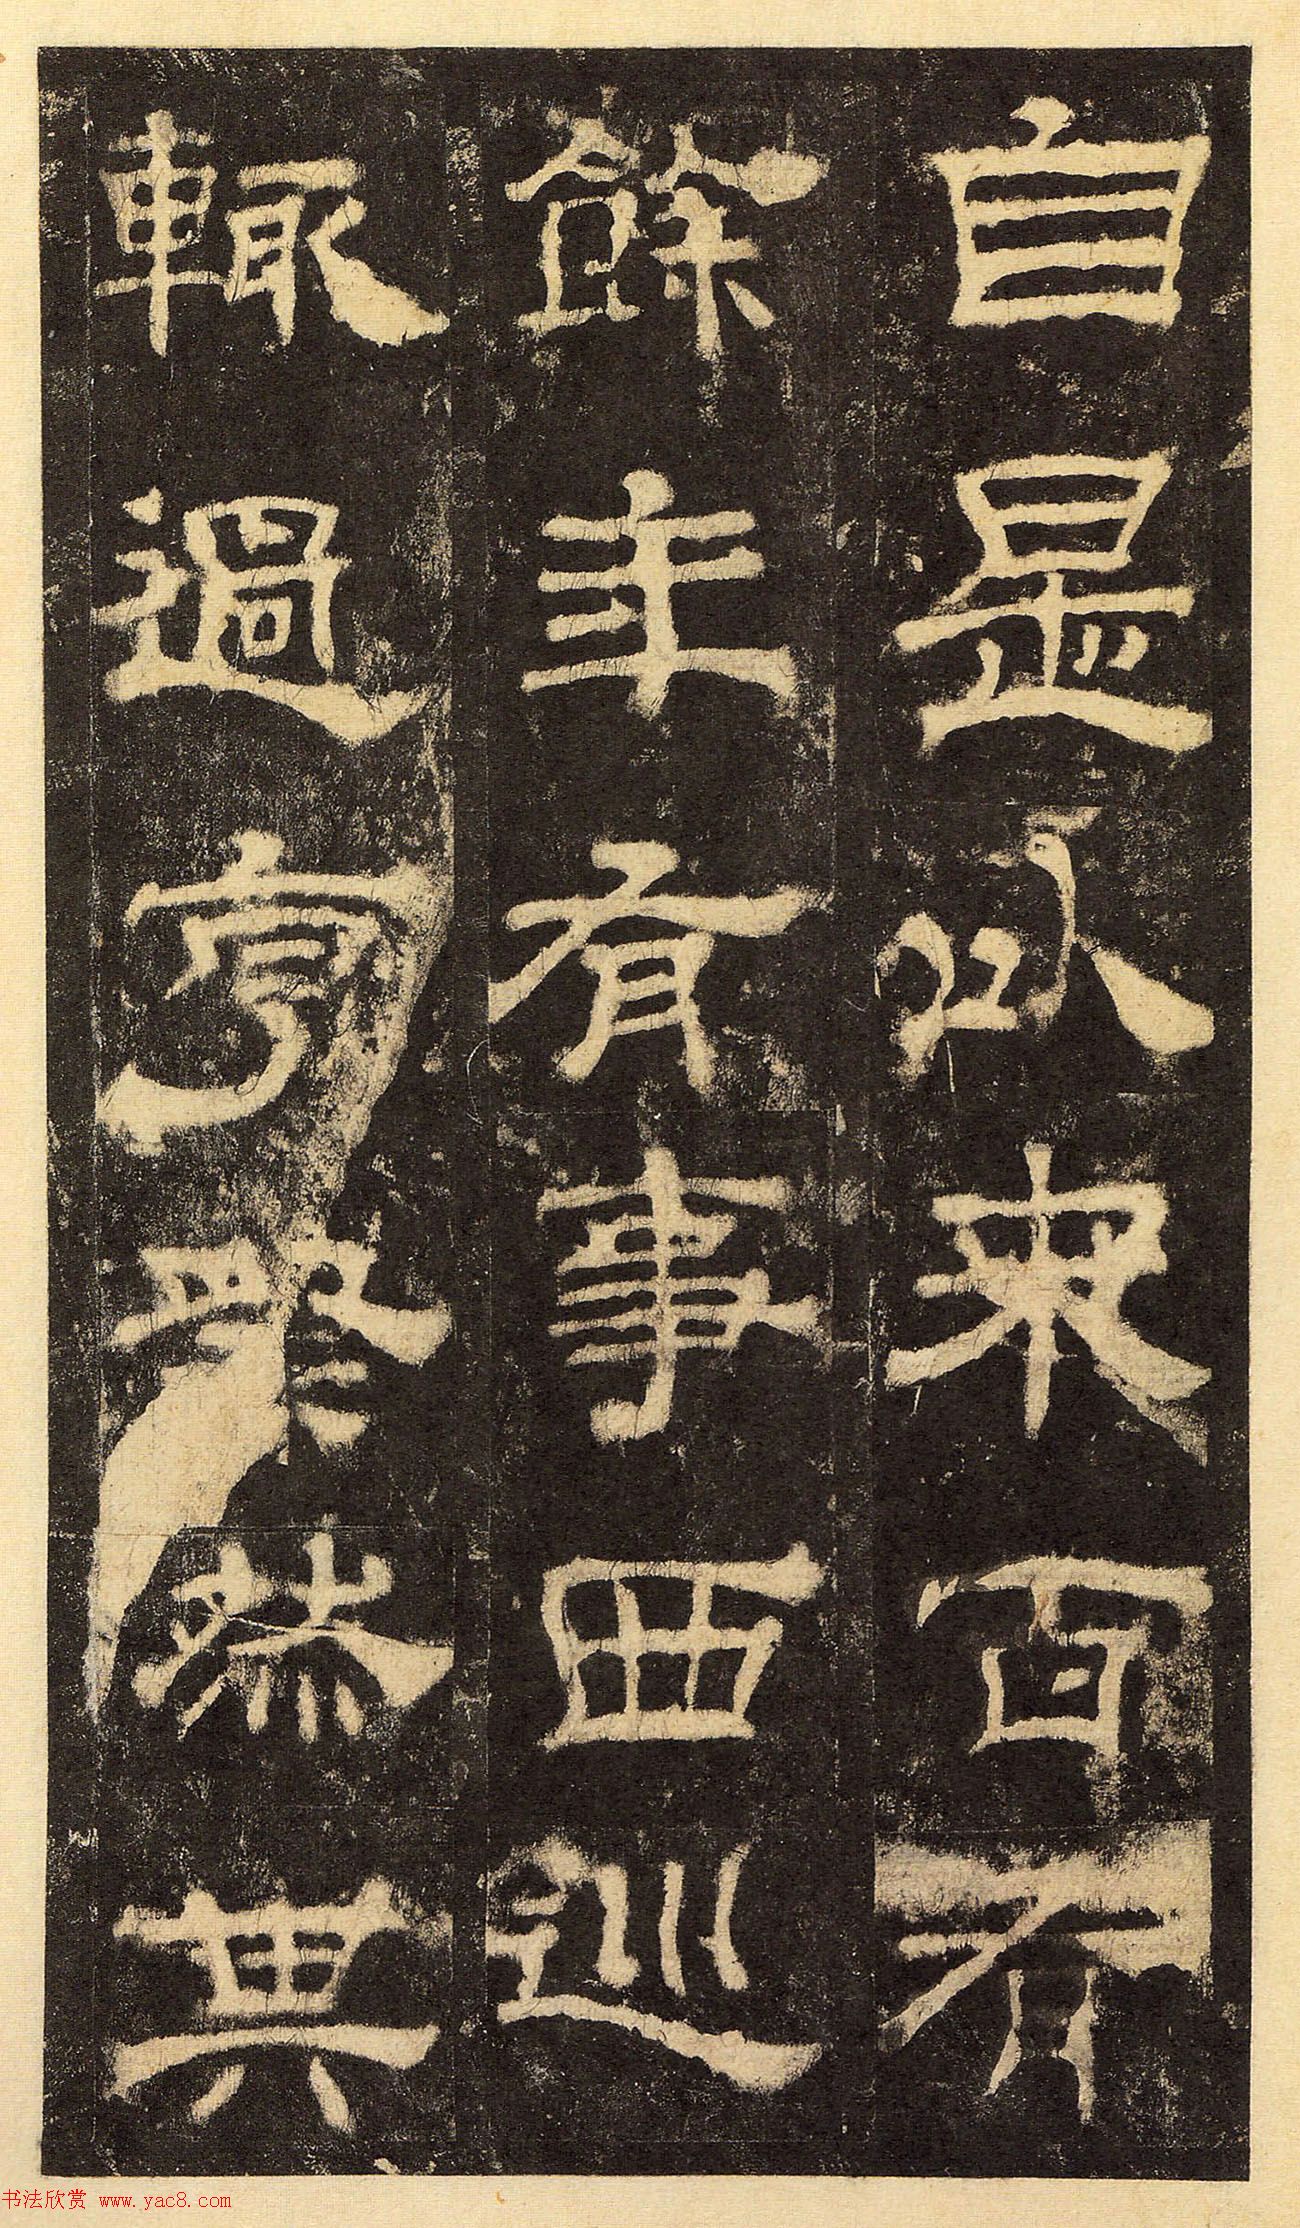 自是以來百有
餘年有事西巡
輒過亨祭然其
书法欣赏 www.yac8.com